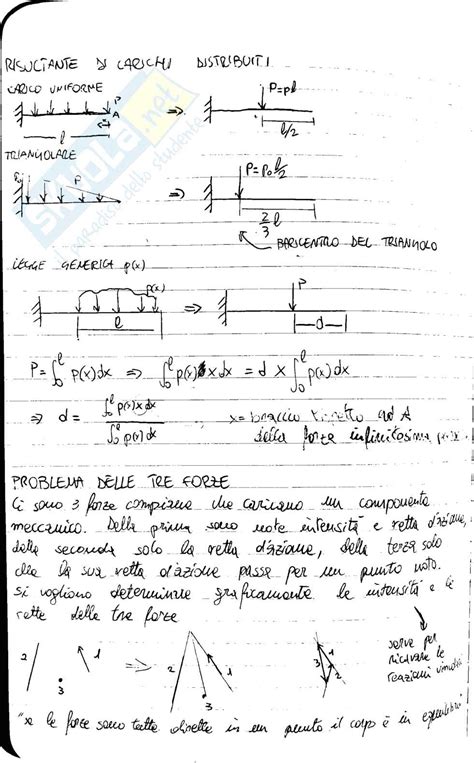 RISULTANTE DI CARICHI DISTRIBUITI
CARICO UNIFORME
P
A
l
⇒
P=pl
l/2
TRIANGOLARE
P₀
P
⇒
P=P₀l/2
2/3 l
BARICENTRO DEL TRIANGOLO
LEGGE GENERICA p(x)
p(x)
l
⇒
P
d
P=∫₀ˡ p(x)dx ⇒ ∫₀ˡ p(x) x dx = d x ∫₀ˡ p(x)dx
⇒ d = ∫₀ˡ p(x)x dx / ∫₀ˡ p(x)dx
x= braccio rispetto ad A
della forza infinitesima
PROBLEMA DELLE TRE FORZE
Ci sono 3 forze complanari che caricano un componente
meccanico. Della prima sono note intensità e retta d'azione,
della seconda solo la retta d'azione, della terza solo
che la sua retta d'azione passa per un punto noto.
si vogliono determinare graficamente le intensità e le
rette delle tre forze
serve per
ricavare le
reazioni
2
1
3
⇒
2
1
3
3
1
2
"se le forze sono tutte dirette in un punto il corpo è in equilibrio"
skuola.net
il paradiso dello studente